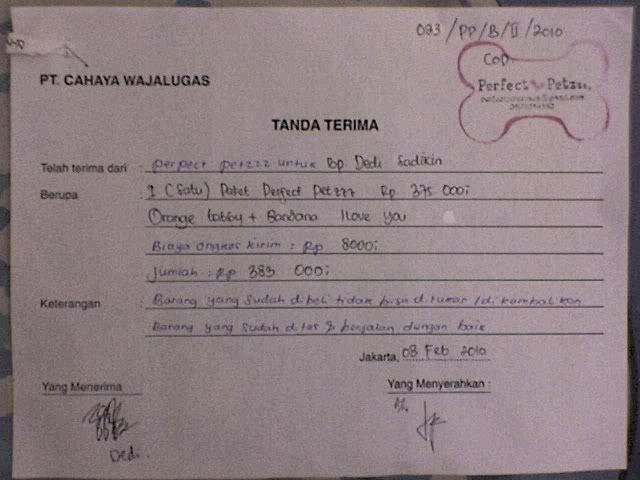 023/PP/B/II/2010
COD.
Perfect Petzzz
PT. CAHAYA WAJALUGAS
TANDA TERIMA
Telah terima dari : perpect petzzz untuk Bp Dedi Sadikin
Berupa : 1 (Satu) Paket Perfect Petzzz Rp 375 000;
Orange tabby + Bandana I love you
Biaya ongkos kirim : Rp 8000;
Jumlah : Rp 383 000;
Keterangan : Barang yang sudah dibeli tidak bisa ditukar / dikembalikan
Barang yang sudah dites & berjalan dengan baik
Jakarta, 08 Feb 2010
Yang Menerima
Yang Menyerahkan :
Dedi.